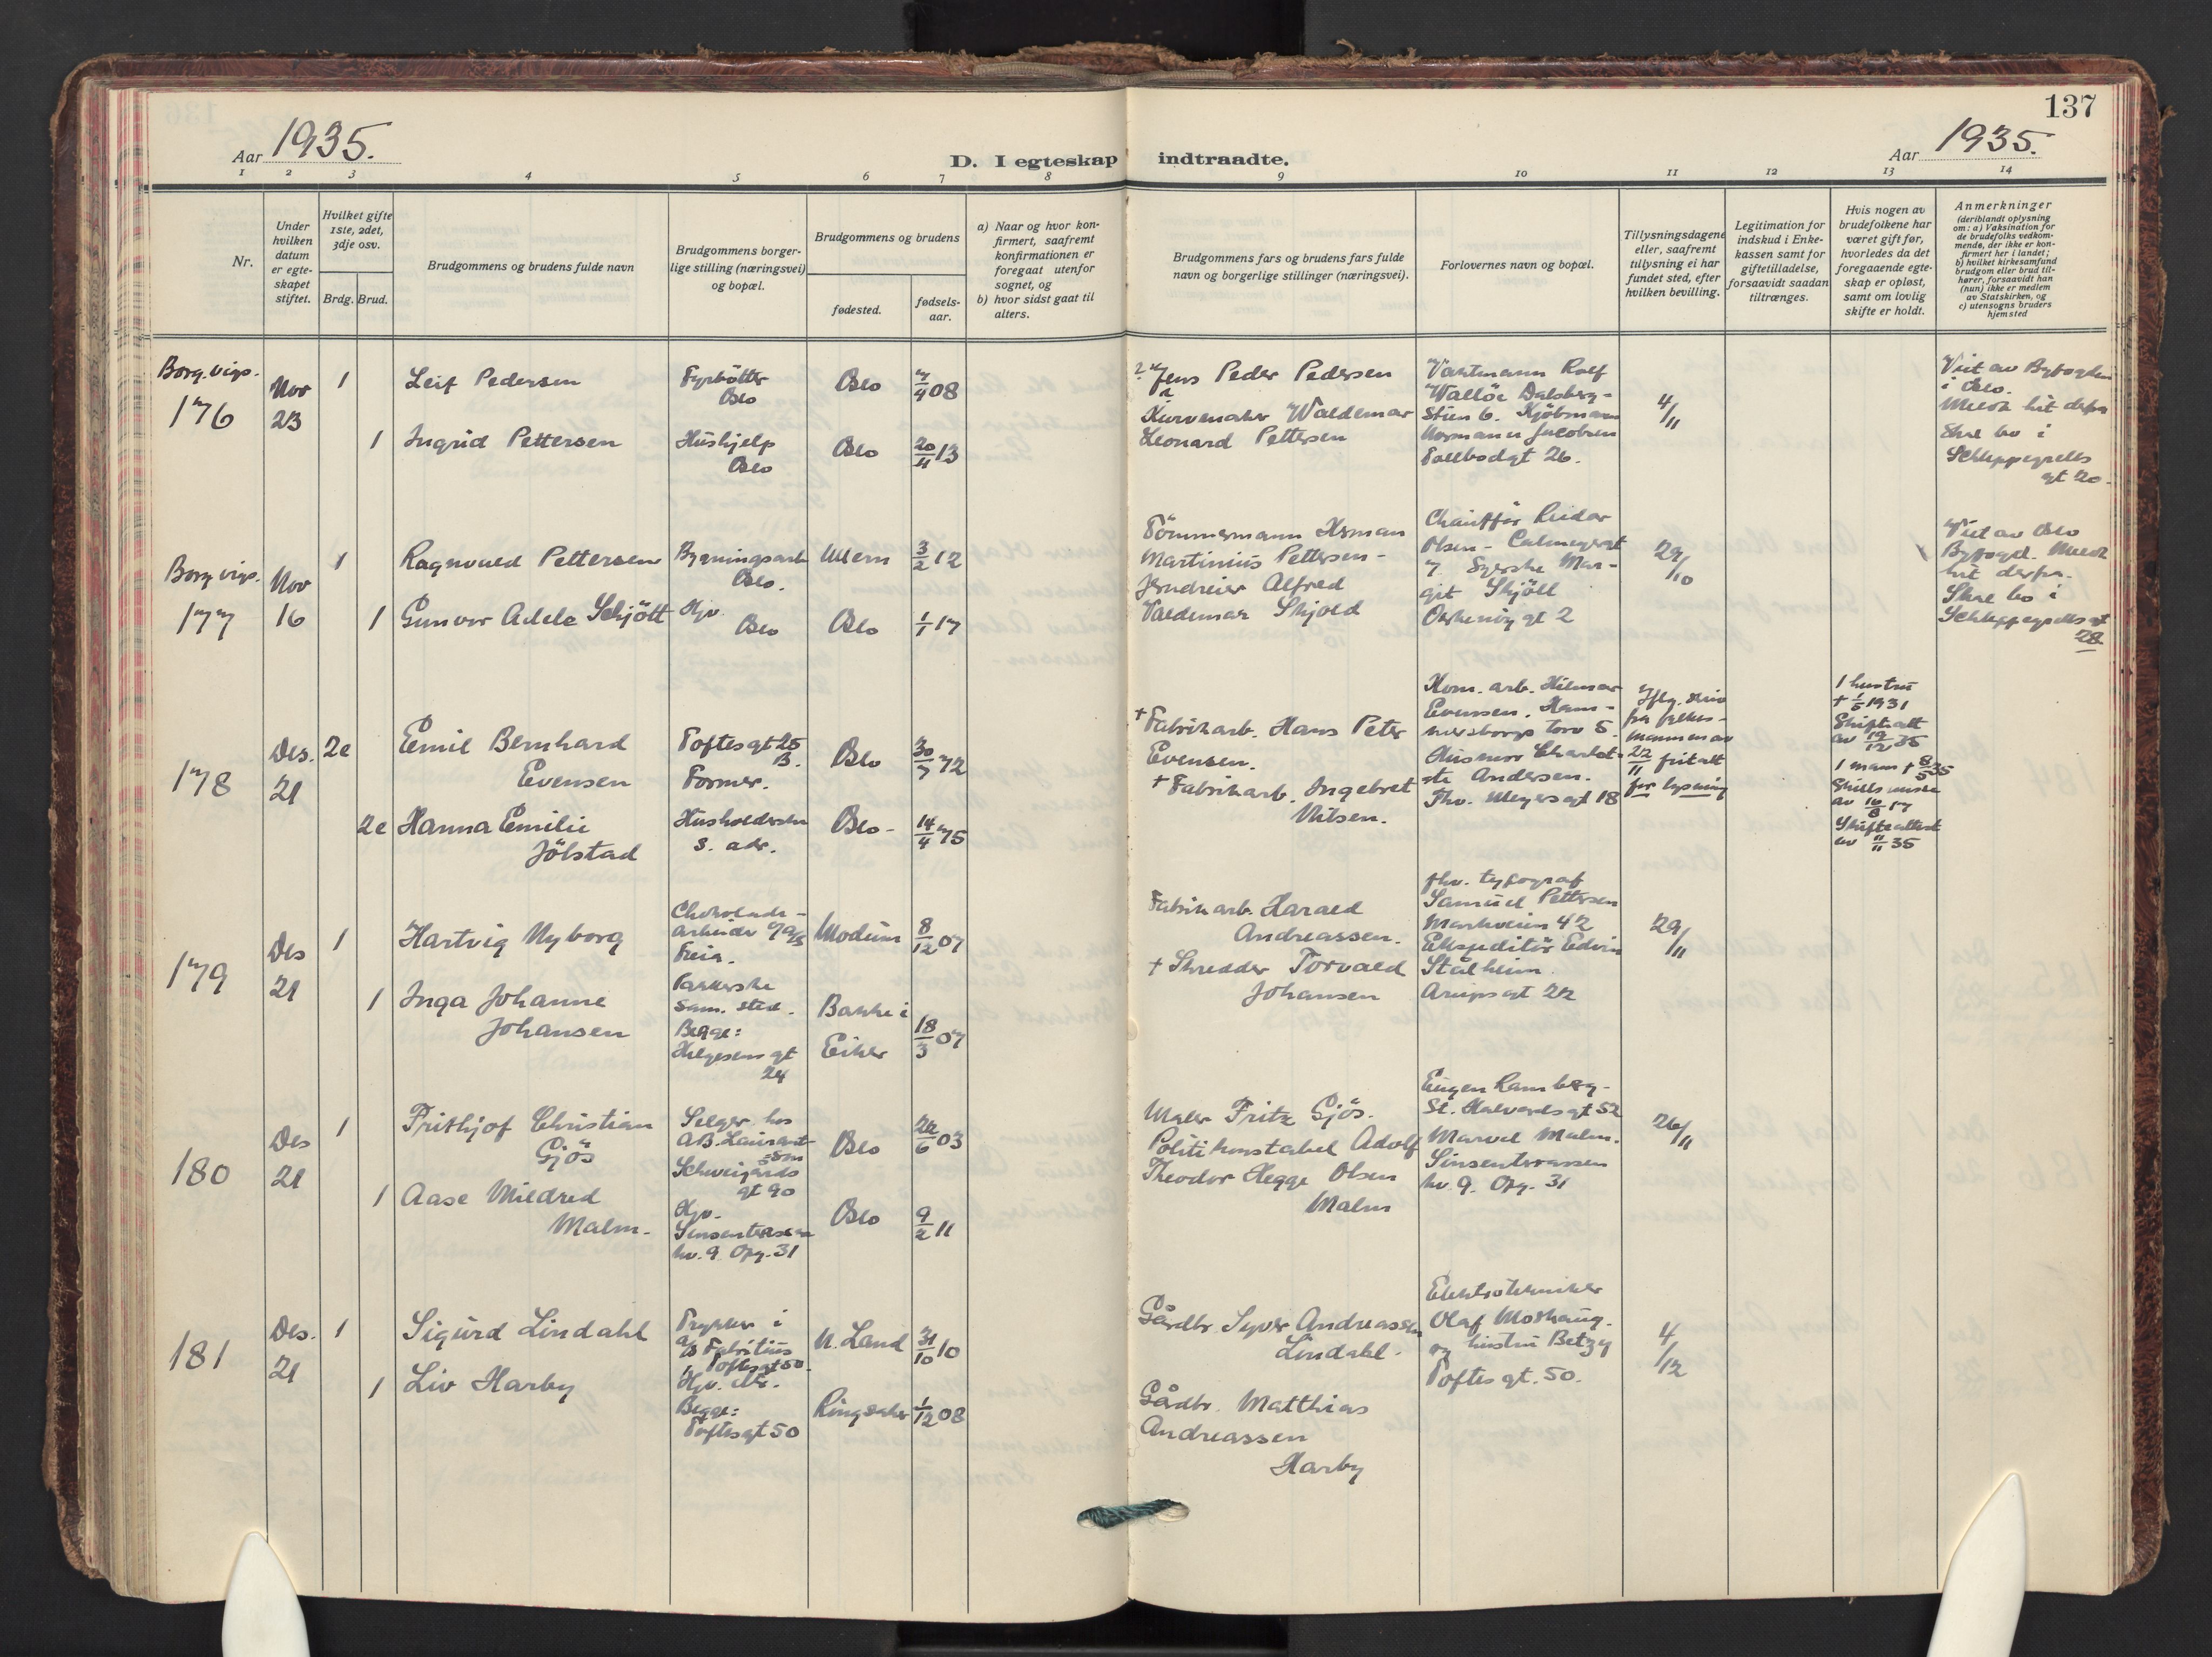 137
Aar 1935.
D. I egteskap indtraadte.
Aar 1935.
1 2 3 4 5 6 7 8 9 10 11 12 13 14
Nr.
Under hvilken datum er egteskapet stiftet.
Hvilket gifte 1ste, 2det, 3dje osv.
Brdg. Brud.
Brudgommens og brudens fulde navn
Brudgommens borgerlige stilling (næringsvei) og bopæl.
Brudgommens og brudens
fødested.
fødselsaar.
a) Naar og hvor konfirmert, saafremt konfirmationen er foregaat utenfor sognet, og
b) hvor sidst gaat til alters.
Brudgommens fars og brudens fars fulde navn og borgerlige stillinger (næringsvei).
Forlovernes navn og bopæl.
Tillysningsdagene eller, saafremt tillysning ei har fundet sted, efter hvilken bevilling.
Legitimation for indskud i Enkekassen samt for giftetilladelse, forsaavidt saadan tiltrænges.
Hvis nogen av brudefolkene har været gift før, hvorledes da det foregaaende egteskap er opløst, samt om lovlig skifte er holdt.
Anmerkninger
(deriblandt oplysning om: a) Vaksination for de brudefolks vedkommende, der ikke er konfirmert her i landet;
b) hvilket kirkesamfund brudgom eller brud tilhører, forsaavidt han (hun) ikke er medlem av Statskirken, og
c) utensogns bruders hjemsted
Borg. vigs.
176
Nov
23
1
Leif Pedersen
Fyrbøter
Oslo
Oslo
7/9 08
1
Ingrid Pettersen
Hushjelp
Oslo
Oslo
20/11 13
Jens Peder Pedersen
Kurvemaker Waldemar
Leonard Pettersen
Vaktmann Rolf
Walløe Dalsberg-
stien 6. Kjøbmann
Normann Jacobsen
Tollbodgt 26.
4/11
Viet av Byfogden
i Oslo.
Meldt hit derfra
Skal bo i
Schleppegrells
gt 20.
Borg. vigs.
177
Nov
16
1
Ragnvald Pettersen
Bygningsarb
Oslo.
Ullern
3/2 12
1
Gunvor Adele Schjött
Hjv.
Oslo
Oslo
1/1 17
Tömmermann Herman
Martinius Pettersen-
Alfred
Valdemar Skjold
Chauffør Reidar
Olsen - Calmeyergt
7 Syerske Mar-
git Skjöll
gt 2
29/10
Viet av Oslo
Byfoged. Meldt
hit derfra.
Skal bo i
Schleppegrells gt
28
178
Des.
21
2e
Emil Bernhard
Evensen
Toftesgt 25
B.
Former.
Oslo
30/7 72
2e
Hanna Emilie
Jölstad
Husholderske
s. adr.
Oslo-
14/4 75
+ Fabrikarb. Hans Peter
Evensen.
+ Fabrikarb. Ingebret
Nilsen.
Kom. arb. Hilmar
Evensen. Ham-
mersborgs torv 5.
Andersen.
Thv. Meyersgt 18
22/11 fritatt
for lysning
1 hustru
+ 1/6 1931
Skifteatt
av 19/12 35
1 mann + 8/5 35
av 16/8 17
Skifteattest
av 11/11 35
179
Des
21
1
Hartvig Nyborg
Chokolade-
arbeider A/S
Freia.
Modum
8/12 07
1
Inga Johanne
Johansen
Pakkerske
sam. sted.
Begge:
Helgesens gt
24
Bakke i
Eiker
18/3 07
Fabrikarb. Harald
Andreassen.
+ Skredder Torvald
Johansen
fhv. typograf
Samuel Pettersen
Markveien 42
Ekspeditör Edvin
Stålheim.
Arupsgt 22
29/11
180
Des
21
1
Frithjof Christian
Gjös
Selger hos
Schweigårds
gt 90
Oslo
22/6 03
1
Aase Mildred
Malm.
Hjv.
Sinsenterrassen
hv. 9. Opg. 31
Oslo
9/2 11
Maler Fritz Gjös.
Politikonstabel Adolf
Theodor Hegge Olsen
Malm
Eugen Ramberg-
St. Halvardsgt 52
Marvel Malm.
Sinsenterrassen
hv. 9. Opg. 31
26/11
181
Des.
21
1
Sigurd Lindahl
Trykker i
A/S Fabritius
Toftesgt 50.
N. Land
31/10 10
1
Liv Harby
Begge:
Toftesgt 50
Ringsaker
1/12 08
Gårdbr. Syver Andreassen
Lindahl.
Gårdbr. Matthias
Andreassen
Harby
Elektrotekniker
Olaf Moshaug.
og hustru Betzy
Toftesgt. 50.
4/12